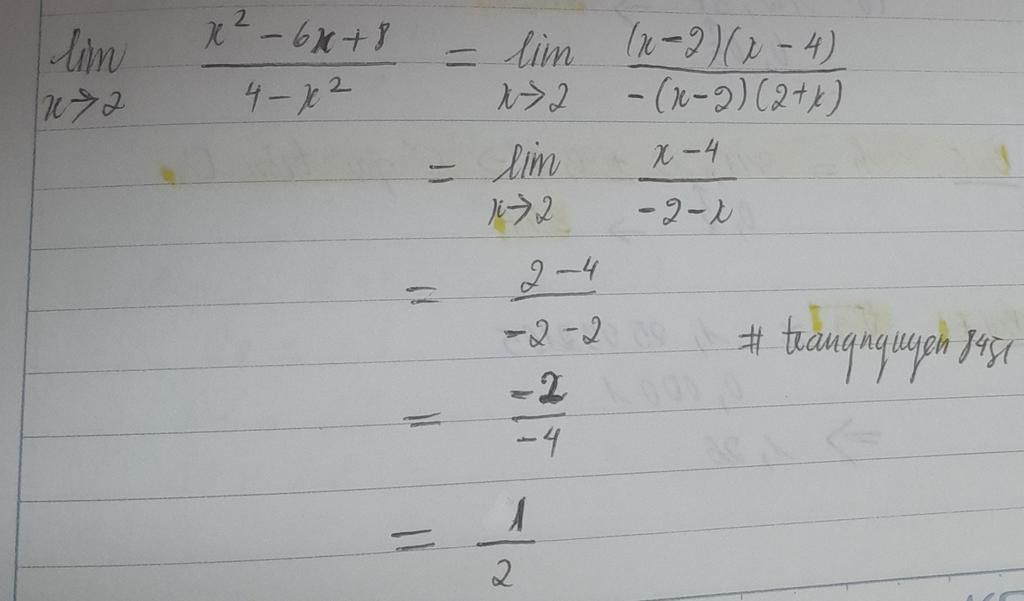 lim x→2 (x² - 6x + 8)/(4 - x²) = lim x→2 ((x-2)(x-4))/(-(x-2)(2+x))
= lim x→2 (x-4)/(-2-x)
= (2-4)/(-2-2)
# trangnguyen8451
= (-2)/(-4)
= 1/2